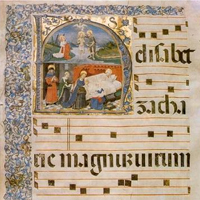 Elisabet
zacha
rie magnuz uirum